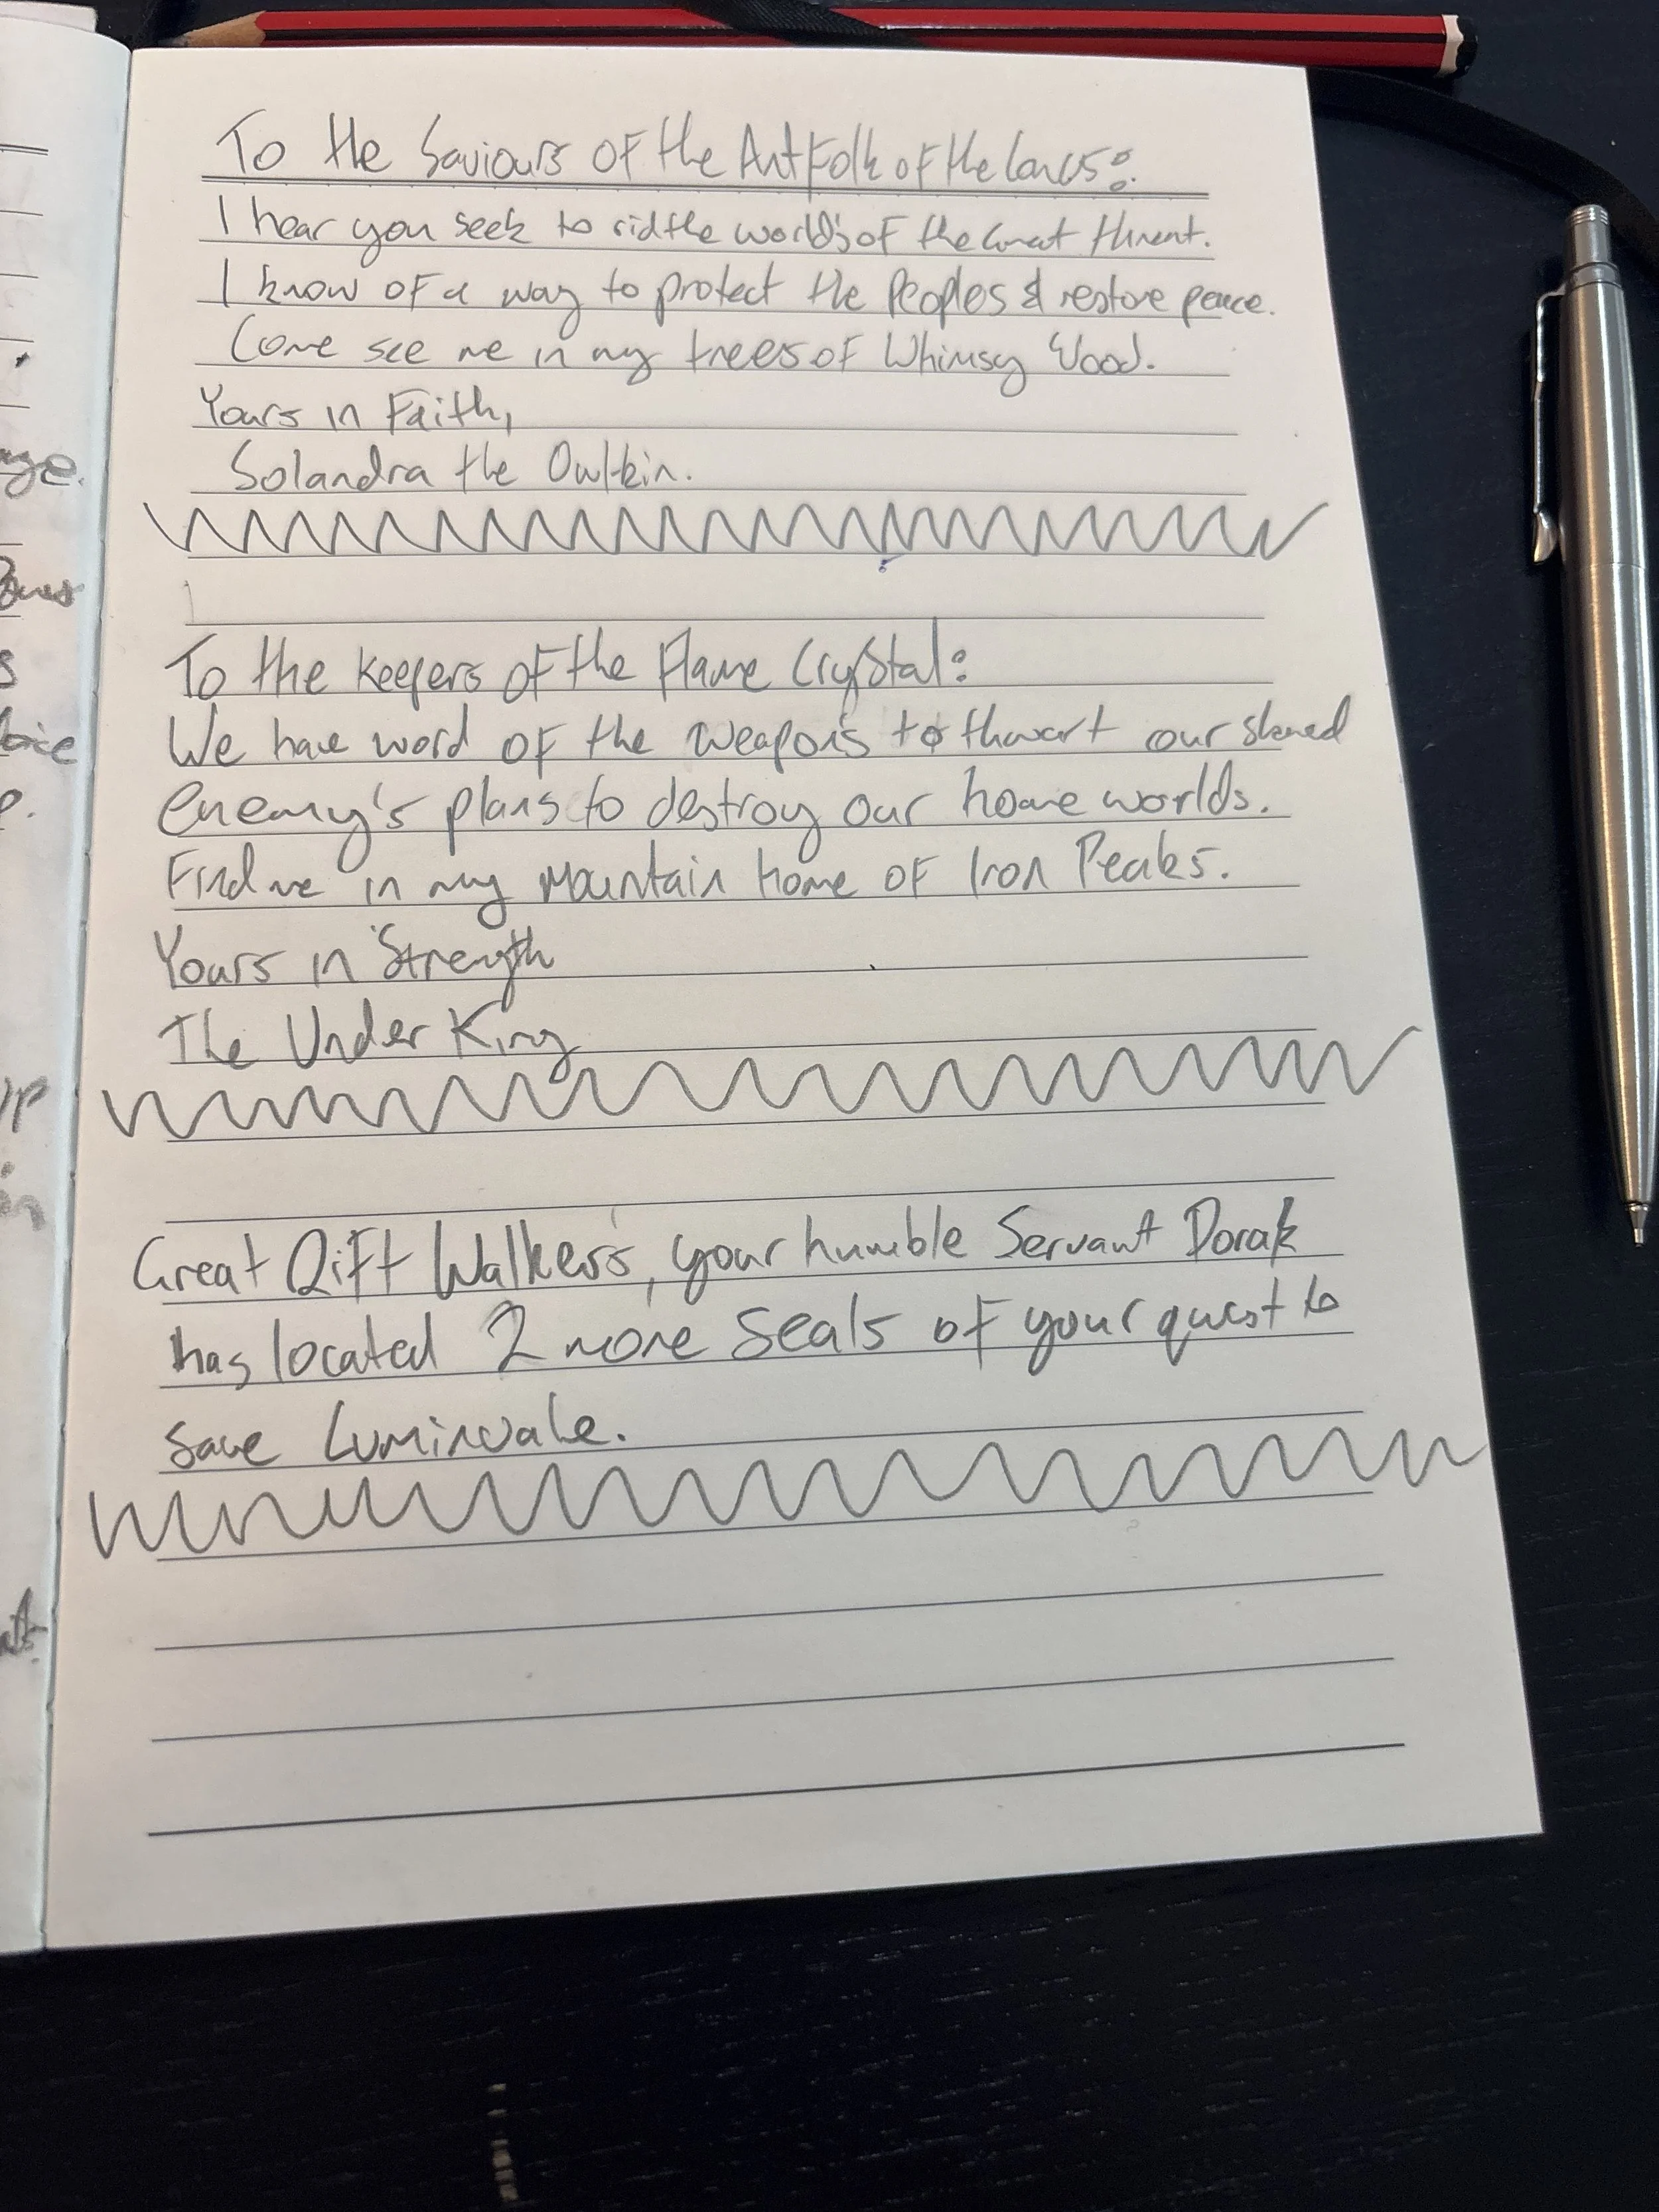 To the Saviours of the Antfolk of the Caves:
I hear you seek to rid the world's of the Great threat.
I know of a way to protect the Peoples & restore peace.
Come see me in my trees of Whimsy Wood.
Yours in Faith,
Solandra the Owlkin.
To the Keepers of the Flame Crystal:
We have word of the weapons to thwart our shared
enemy's plans to destroy our home worlds.
Find me in my mountain home of Iron Peaks.
Yours in Strength
The Under King
Great Rift Walkers, your humble Servant Dorak
has located 2 more Seals of your quest to
save Luminvale.